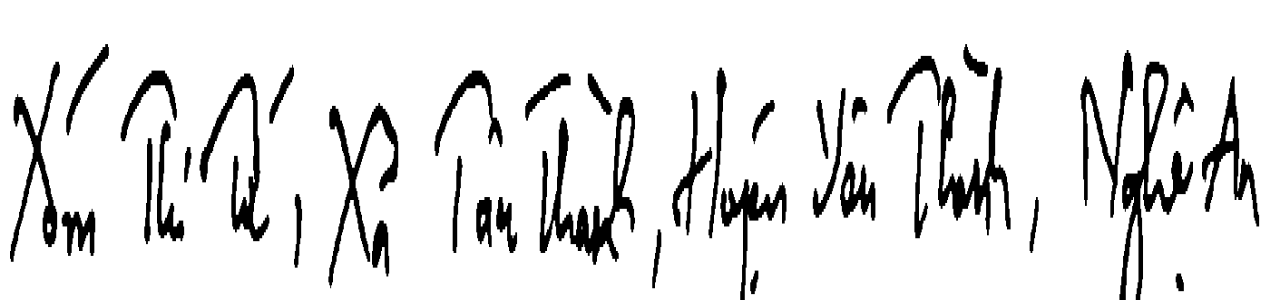 Xóm Thị Tứ, Xã Tân Thành, Huyện Yên Thành, Nghệ An